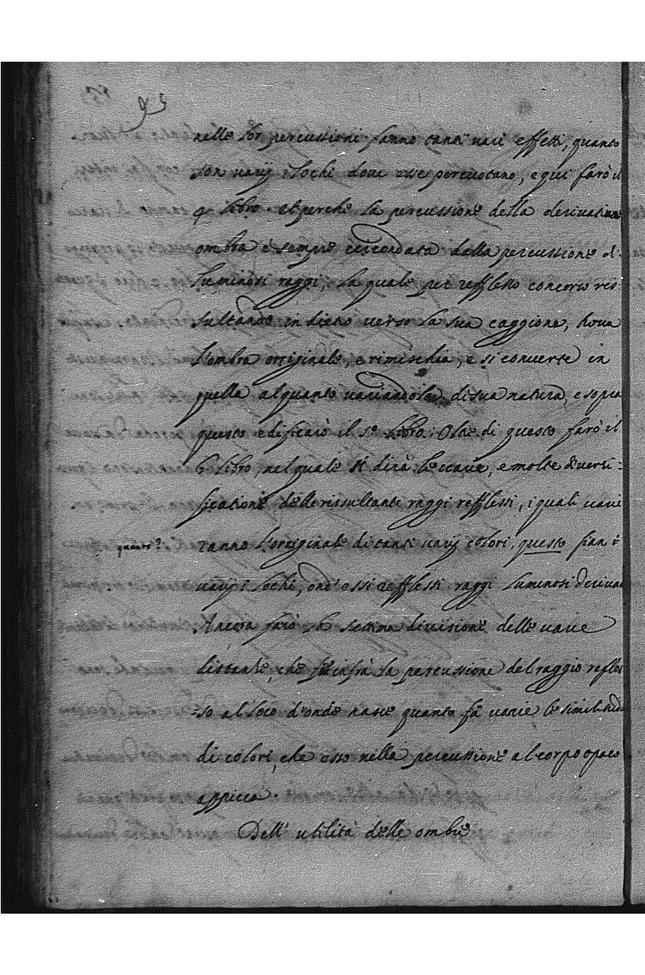 95
nelle lor percussioni fanno tanti vari effetti, quanto
son varij i lochi dove esse percuotano, e qui farò il
4 libro. et perchè la percussione della derivativa
ombra è sempre circondata dalla percussione de
luminosi raggi, la quale per reflesso concorso ris
sultando indietro verso la sua caggione, trova
l'ombra originale, e rimischia, e si converte in
quella alquanto variandola di sua natura, e sopra
questo edificarò il 5º libro. Oltr di questo farò il
6 libro, nel quale si dirà le varie, e molte diversi=
ficatione delle rissultanti raggi reflessi, i quali varie
quanti? ranno l'originale di tanti varij colori, questo fian i
varij i lochi, ond' essi reflessi raggi luminosi deriva
Ancora farò la settima divisione delle varie
distantie, che fie infrà la percussione del raggio refles
=so al loco d'onde nasce quanto fà varie le similitud
di colori, che esso nella percussione al corpo opaco
appicca.
Dell' utilità delle ombre